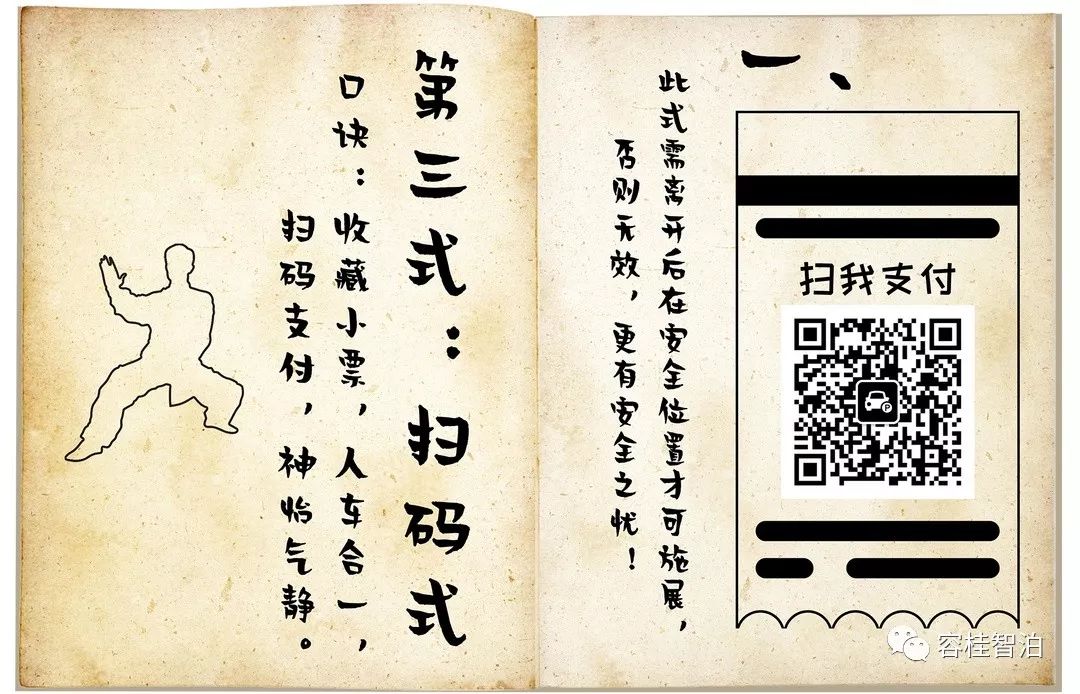 第三式：扫码式
口诀：收藏小票，人车合一，
扫码支付，神怡气静。
一、
此式需离开后在安全位置才可施展，
否则无效，更有安全之忧！
扫我支付
P
容桂智泊